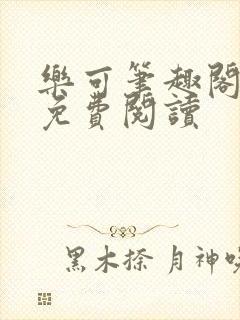 樂可筆趣閣
免費閱讀
黑木捺 月神